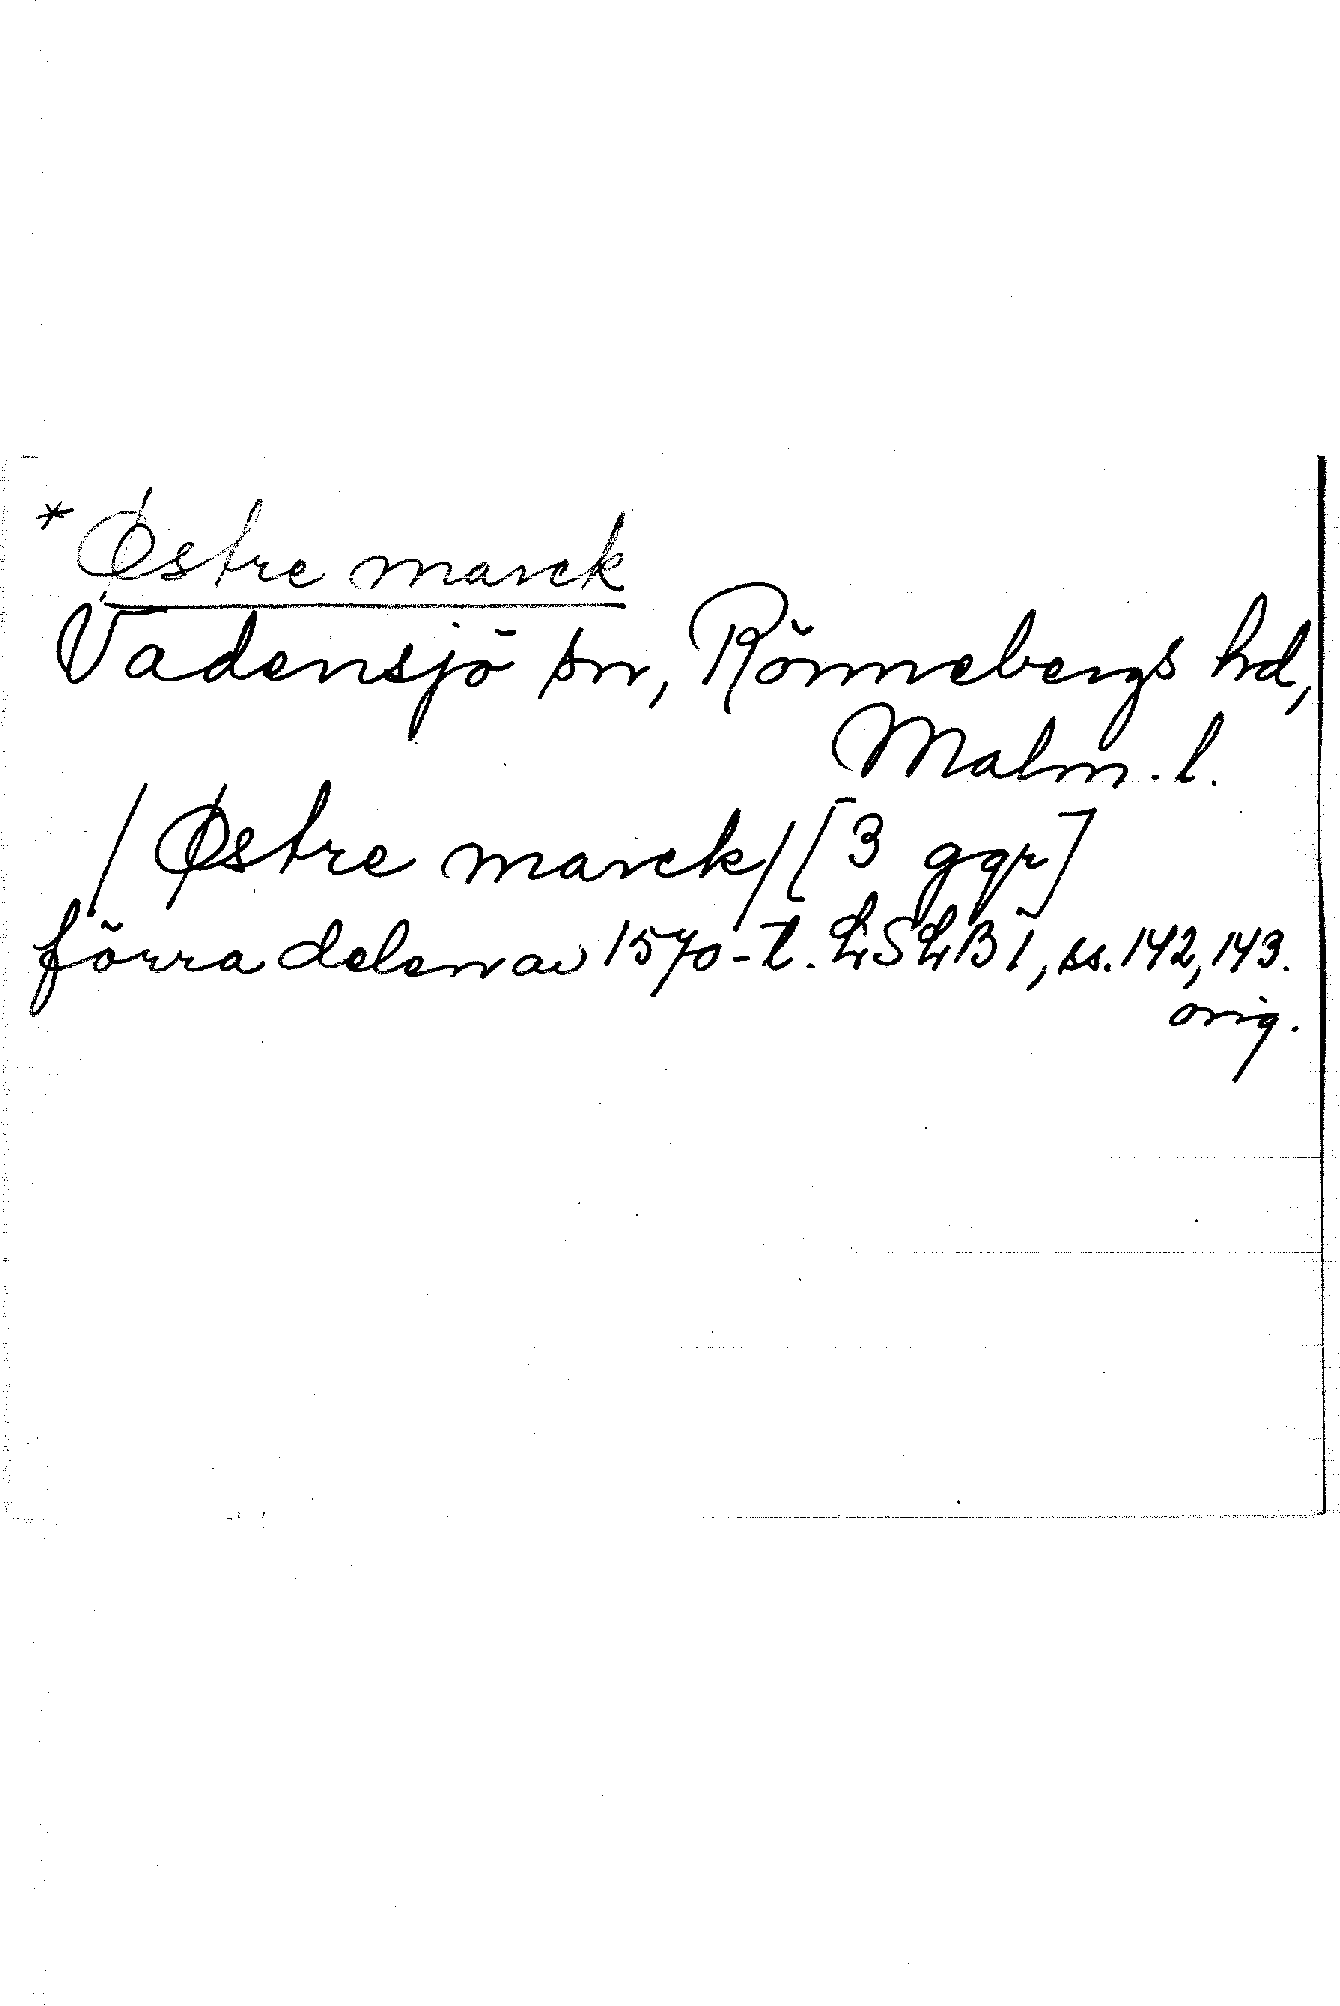 * Østre marck
Vadensjö sn, Rönnebergs hd,
Malm. l.
/Østre marck/ [3 ggr]
förra delen av 1570-t. LSLB I, ss. 142, 143.
orig.